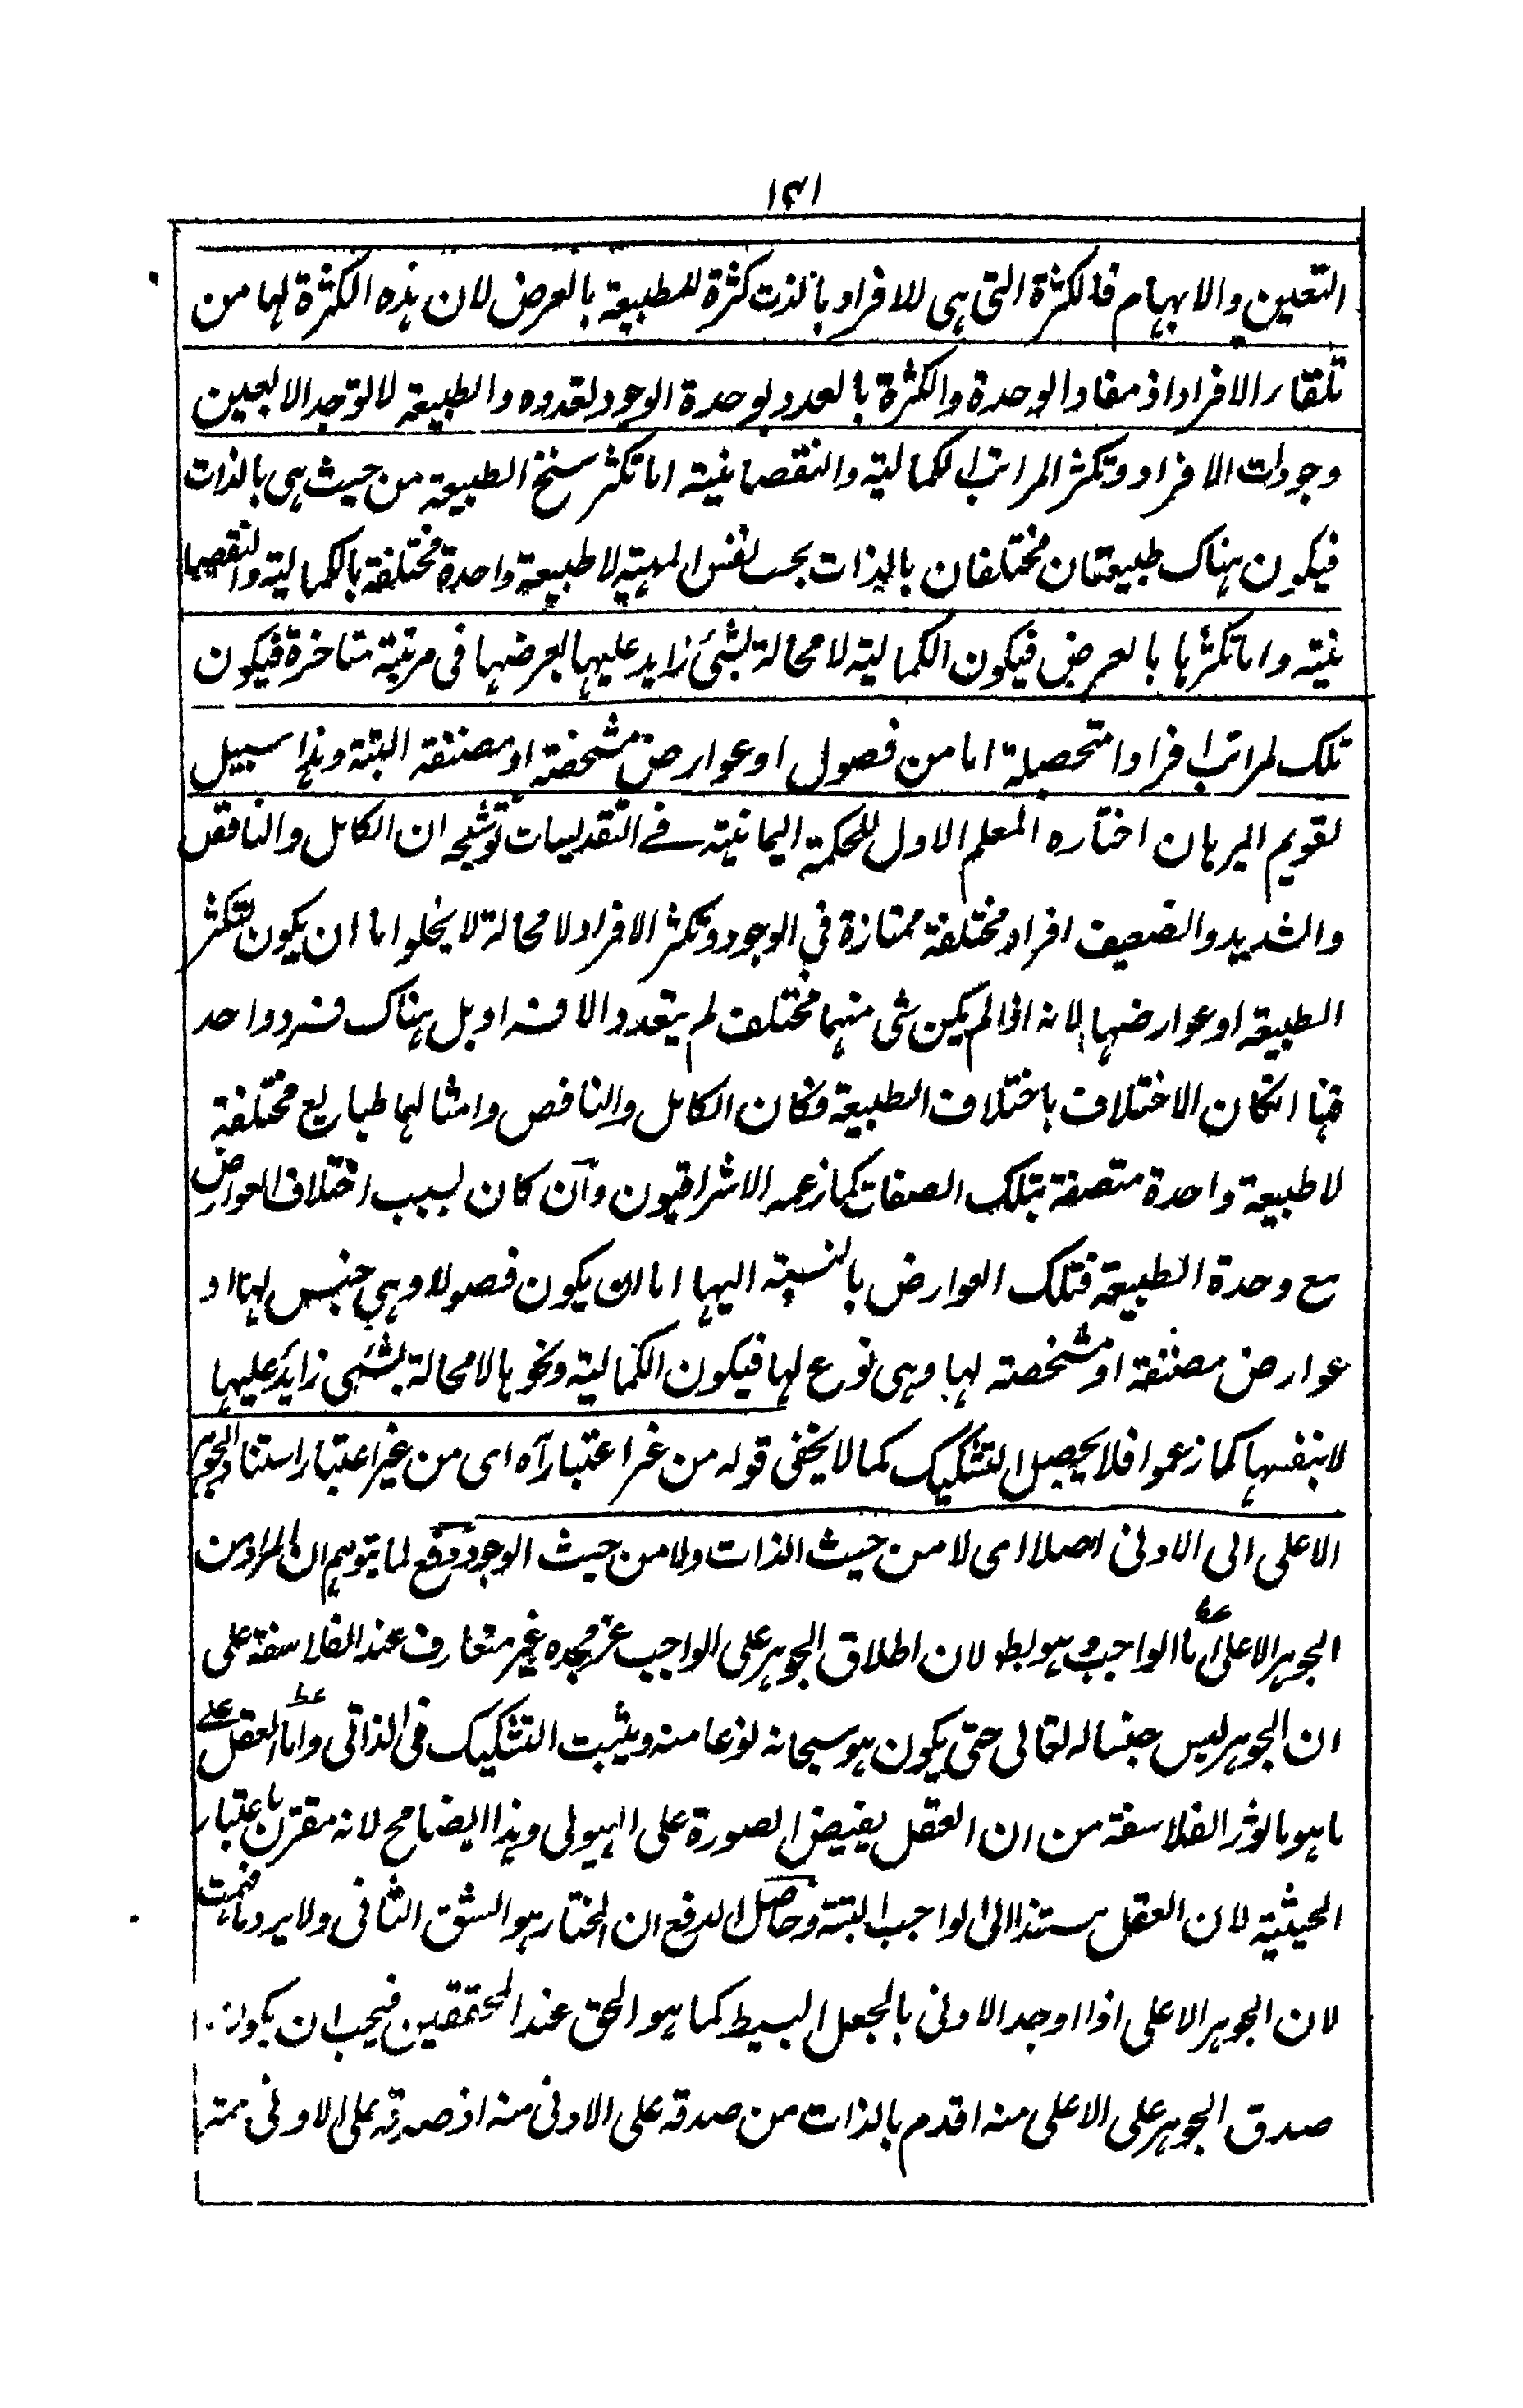 ١٤١
التعين والابهام فالكثرة التى هى للافراد بالذت كثرة للطبيعة بالعرض لان هذه الكثرة لها من
تلقاء الافراد اذ مفاد الوحدة والكثرة بالعدد لوحدة الوجود لتعدده والطبيعة لا توجد الا بعين
وجودات الافراد وتكثر المراتب الكمالية والنقصانية اما تكثر سنخ الطبيعة من حيث هى بالذات
فيكون هناك طبيعتان مختلفان بالذات بحسب نفس المهية لا طبيعة واحدة مختلفة بالكمالية والنقصا
نية واما تكثرها بالعرض فيكون الكمالية لا محالة بشئ زايد عليها يعرضها فى مرتبة متاخرة فيكون
تلك المراتب افرادا متحصلة اما من فصول او عوارض مشخصة او مصنفة البتة وهذا سبيل
تقويم البرهان اختاره المعلم الاول للحكمة اليمانية فے التقديسات توشيحه ان الكامل والناقص
والشديد والضعيف افراد مختلفة ممتازة فى الوجود وتكثر الافراد لا محالة لا يخلو اما ان يكون بتكثر
الطبيعة او عوارضها لانه اذا لم يكن شى منهما مختلف لم يتعدد الافراد بل هناك فرد واحد
فهنا انكان الاختلاف باختلاف الطبيعة فكان الكامل والناقص وامثالهما طبايع مختلفة
لا طبيعة واحدة متصفة بتلك الصفات كما زعمه الاشراقيون وان كان بسبب اختلاف العوارض
مع وحدة الطبيعة فتلك العوارض بالنسبة اليها اما ان يكون فصولا وهى جنس لها او
عوارض مصنفة او مشخصة لها وهى نوع لها فيكون الكمالية ونحوها لا محالة بشئى زايد عليها
لا بنفسها كما زعموا فلا يحصل التشكيك كما لا يخفى قوله من غير اعتبار آه اى من غير اعتبار استناد الجوهر
الاعلى الى الادنى اصلا اى لا من حيث الذات ولا من حيث الوجود دفع لما يتوهم ان المراد من
الجوهر الاعلى اما الواجب وهو بط لان اطلاق الجوهر على الواجب عز مجده غير متعارف عند الفلاسفة على
ان الجوهر ليس جنسا له تعالى حتى يكون هو سبحانه نوعا منه ويثبت التشكيك فى الذاتى واما العقل علے
ما هو ماثور الفلاسفة من ان العقل يفيض الصورة على الهيولى وهذا ايضا مح لانه مقترن باعتبار
الحيثية لان العقل مستند الى الواجب البتة وحاصل الدفع ان المختار هو الشق الثانى ولا يرد ما فهمت
لان الجوهر الاعلى اذا اوجد الادنى بالجعل البسيط كما هو الحق عند المحققين فيجب ان يكون
صدق الجوهر على الاعلى منه اقدم بالذات من صدقه على الادنى منه اذ صدقه على الادنى